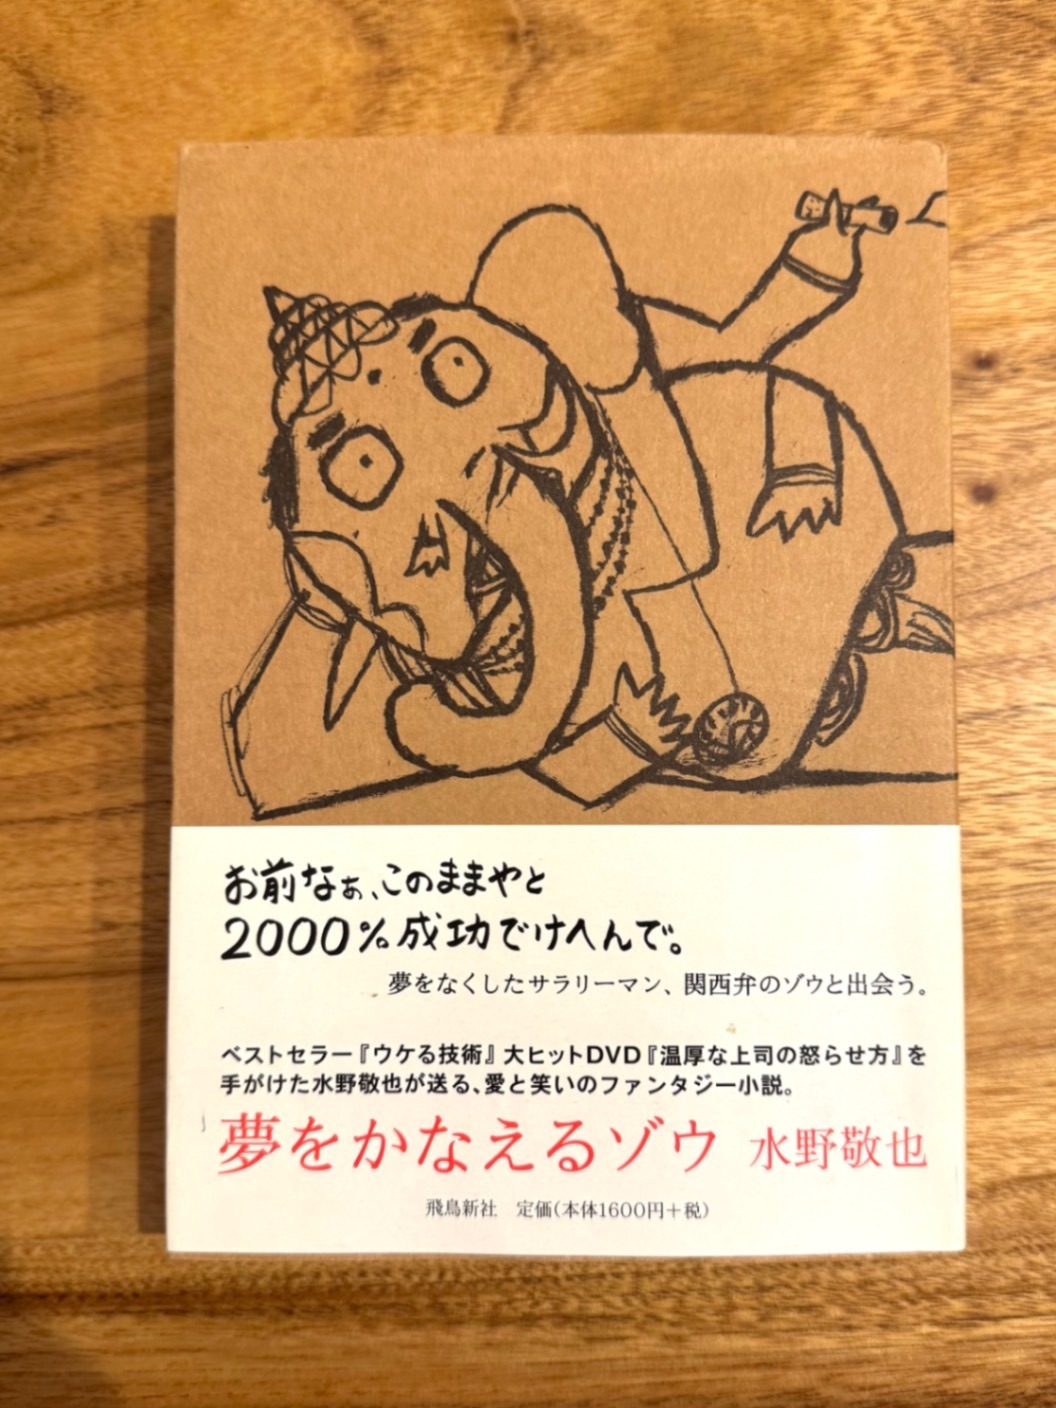 お前なぁ、このままやと
2000%成功でけへんで。
夢をなくしたサラリーマン、関西弁のゾウと出会う。
ベストセラー『ウケる技術』大ヒットDVD『温厚な上司の怒らせ方』を
手がけた水野敬也が送る、愛と笑いのファンタジー小説。
夢をかなえるゾウ 水野敬也
飛鳥新社 定価(本体1600円+税)